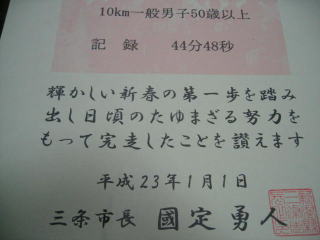 10km一般男子50歳以上
記録 44分48秒
輝かしい新春の第一歩を踏み
出し日頃のたゆまざる努力を
もって完走したことを讃えます
平成23年1月1日
三条市長 國定勇人